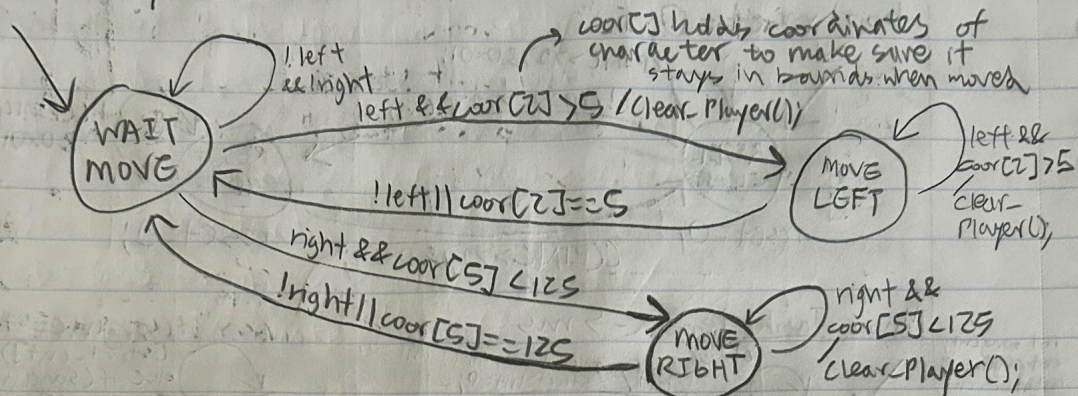 coor[] holds coordinates of
character to make sure it
stays in bounds when moved
!left
&&!right
left && coor[2]>5 /clear_Player();
WAIT
MOVE
MOVE
LEFT
left &&
coor[2]>5
/
clear_
Player();
!left||coor[2]==5
right && coor[5]<125
!right||coor[5]==125
MOVE
RIGHT
right &&
coor[5]<125
/
clear_Player();